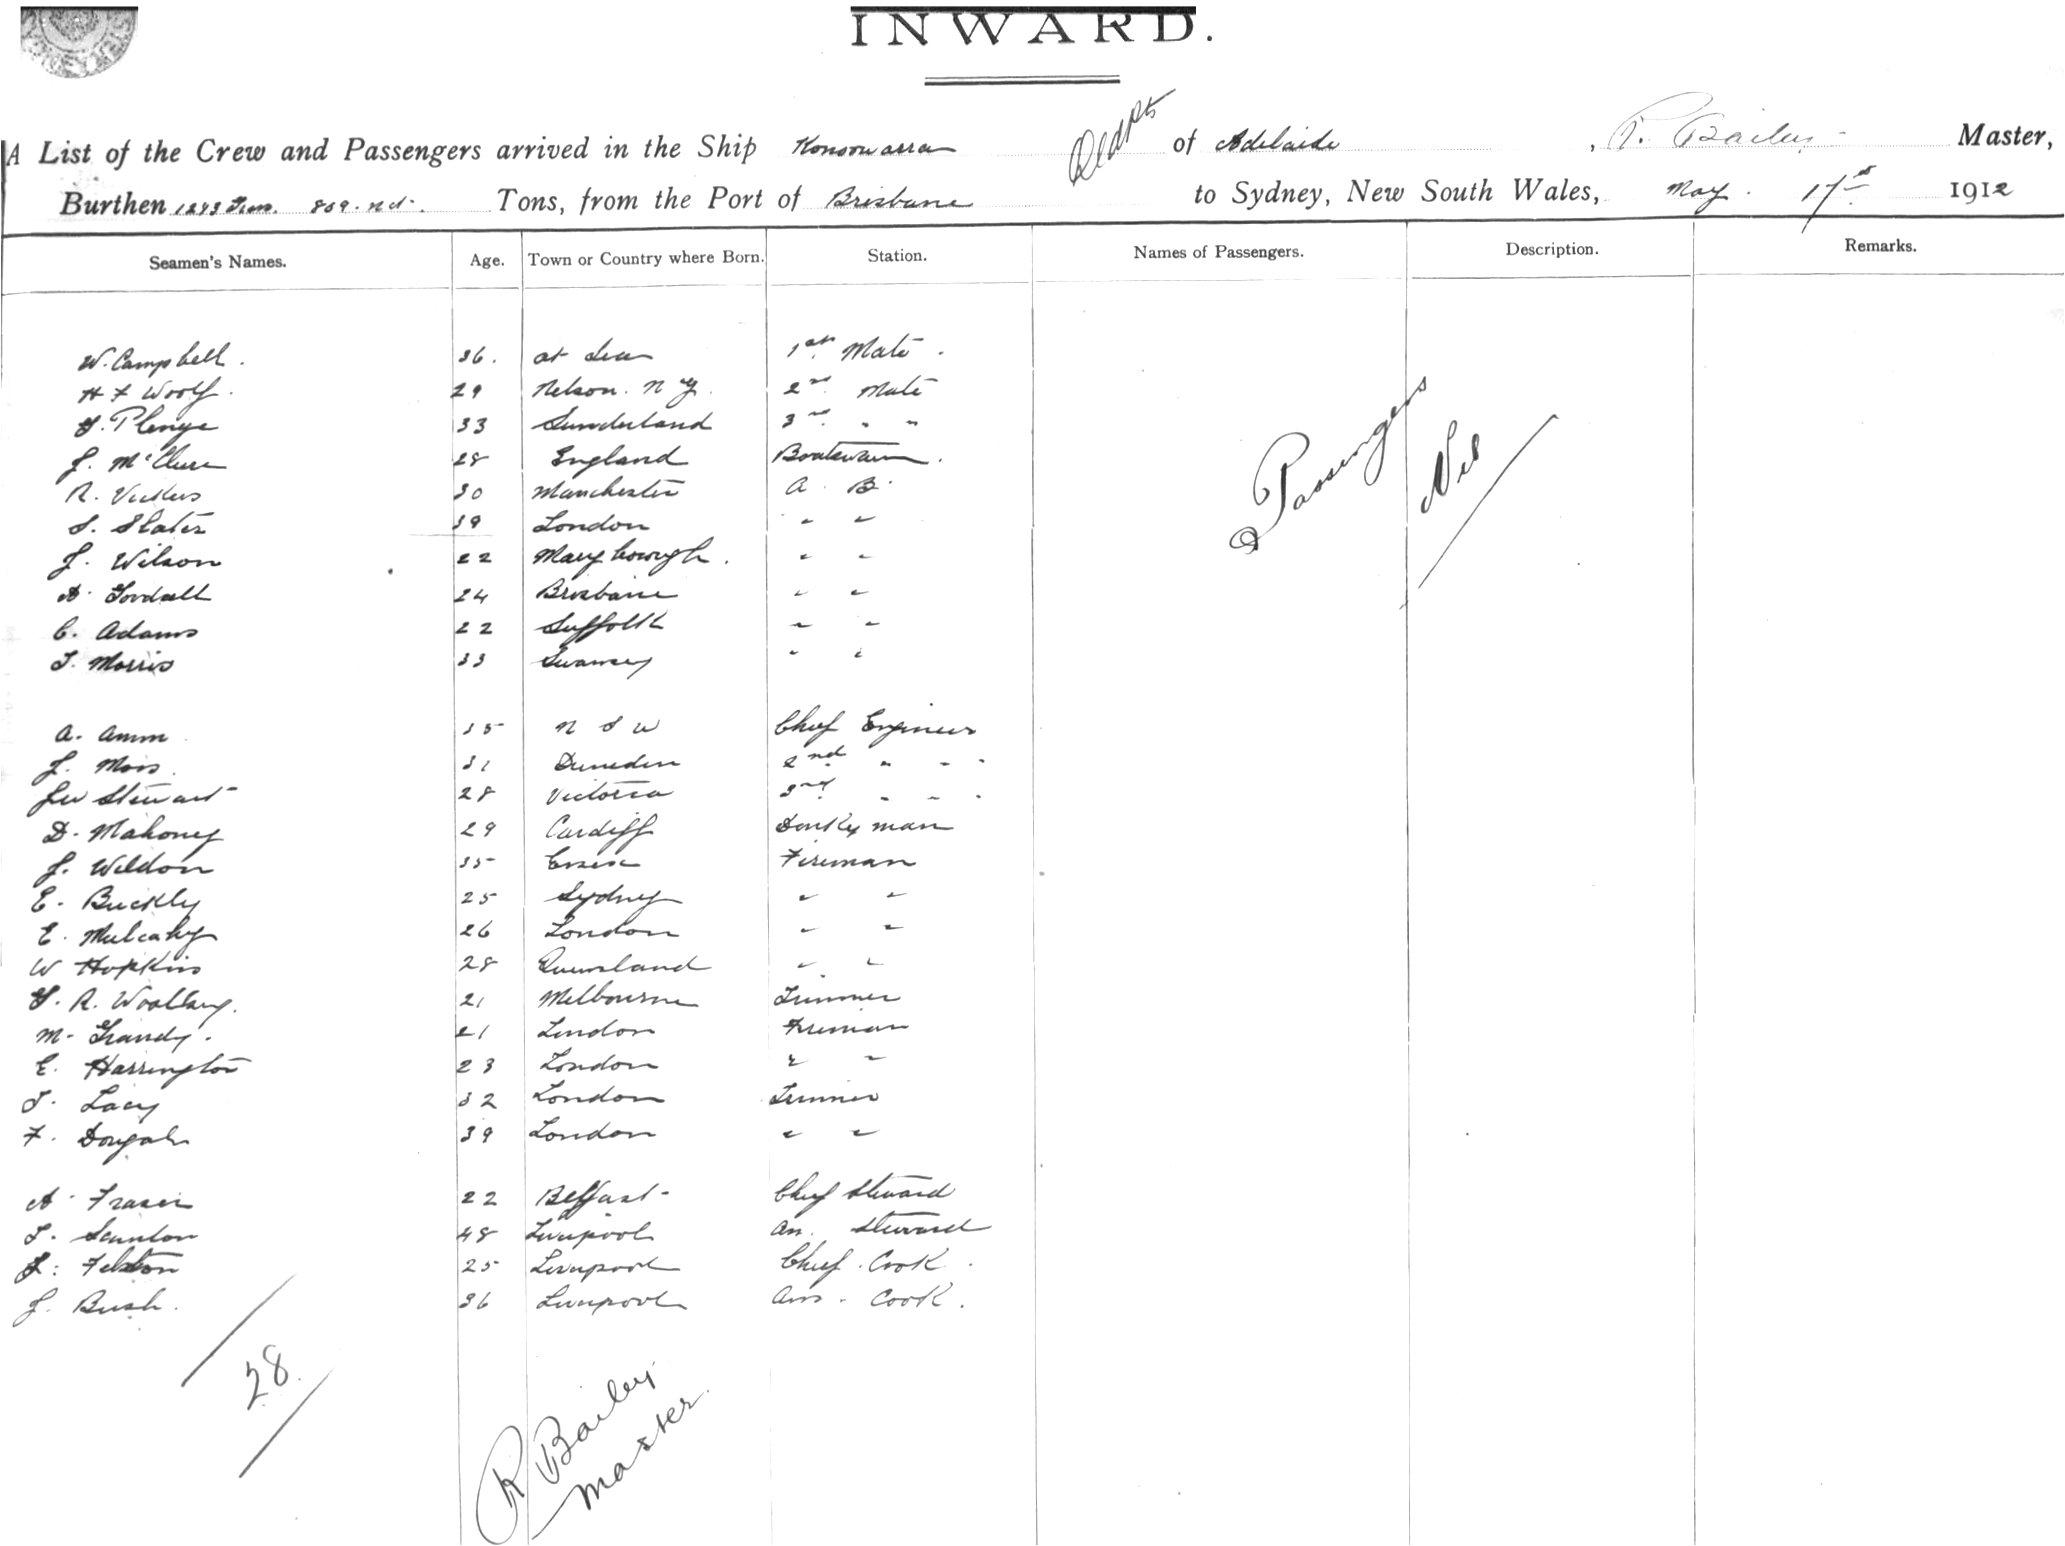 INWARD.
A List of the Crew and Passengers arrived in the Ship Konoowarra of Adelaide, R. Bailey Master,
Burthen 1273 Tons. 809 net. Tons, from the Port of Brisbane to Sydney, New South Wales, May 17th 1912
Seamen's Names. Age. Town or Country where Born. Station. Names of Passengers. Description. Remarks.
W. Campbell. 36. at Sea 1st Mate.
H F Woolf. 29 Nelson. N Z. 2nd Mate
Plenge 33 Sunderland 3rd " "
J. McClure 28 England Boatswain.
R. Vickers 30 Manchester A. B.
S. Slater 39 London " "
J. Wilson 22 Maryborough. " "
A. Goodall 24 Brisbane " "
C. Adams 22 Suffolk " "
T. Morris 33 Swansey " "
A. Amm 35 N S W Chief Engineer
J. Moss. 31 Dunedin 2nd " "
J W Stewart 28 Victoria 3rd " "
D. Mahoney 29 Cardiff Donkeyman
J. Weldon 35 Essex Fireman
E. Buckly 25 Sydney " "
E. Mulcahy 26 London " "
W Hopkins 28 Queensland " "
R. 21 Melbourne Trimmer
M. Grandy. 21 London Fireman
E. Harrington 23 London " "
T. Lacy 32 London Trimmer
F. Dougall 39 London " "
A. Fraser 22 Belfast Chief Steward
T. Scanlon 48 Liverpool Ass. Steward
Felston 25 Liverpool Chief. Cook.
J. Bush. 36 Liverpool Ass. Cook.
Passengers Nil
28
R Bailey
Master